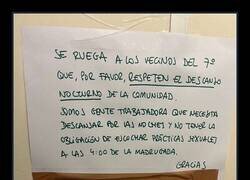 SE RUEGA A LOS VECINOS DEL 7º
QUE, POR FAVOR, RESPETEN EL DESCANSO
NOCTURNO DE LA COMUNIDAD.
SOMOS GENTE TRABAJADORA QUE NECESITA
DESCANSAR POR LAS NOCHES Y NO TENER LA
OBLIGACIÓN DE ESCUCHAR PRÁCTICAS SEXUALES
A LAS 4:00 DE LA MADRUGADA.
GRACIAS